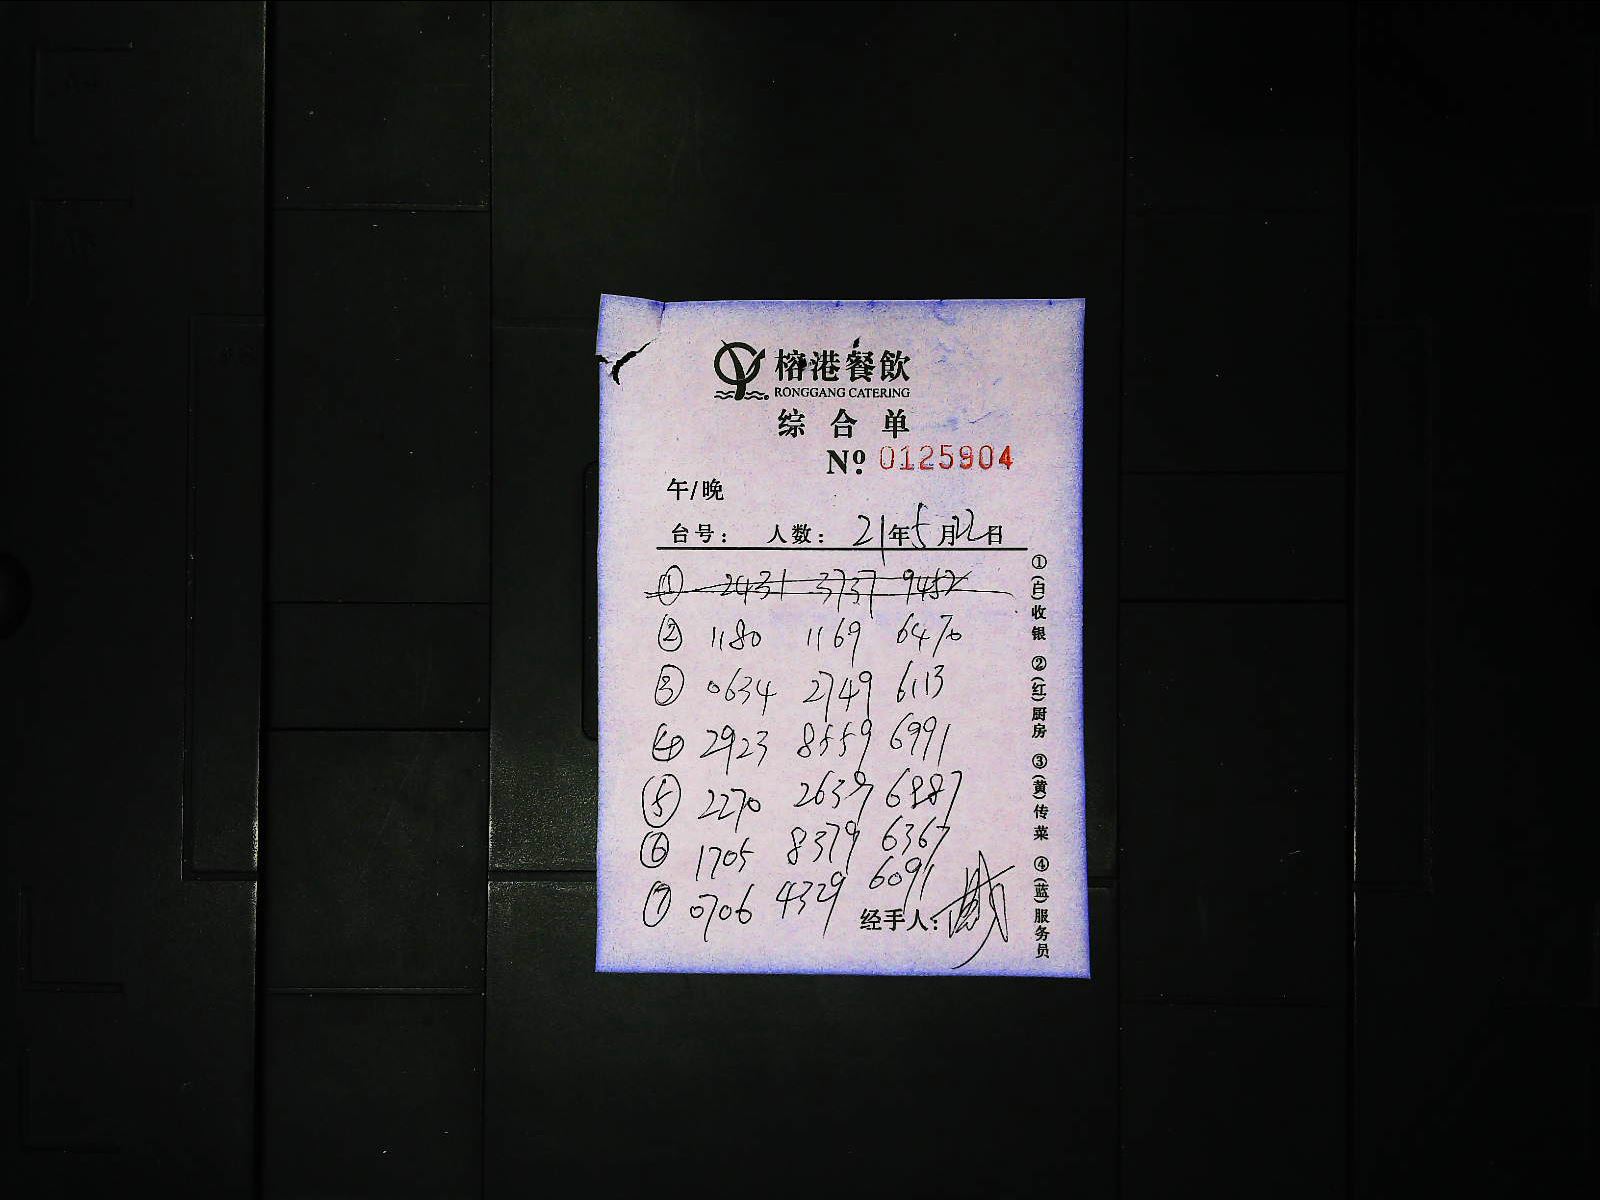 榕港餐飲
RONGGANG CATERING
综合单
Nº 0125904
午/晚
台号: 人数: 21年5月22日
① 2431 3737 9452
② 1180 1169 6470
③ 0634 2749 6113
④ 2923 8559 6991
⑤ 2270 2639 6987
⑥ 1705 8379 6367
⑦ 0706 4329 6091
经手人:
①(白)收银 ②(红)厨房 ③(黄)传菜 ④(蓝)服务员